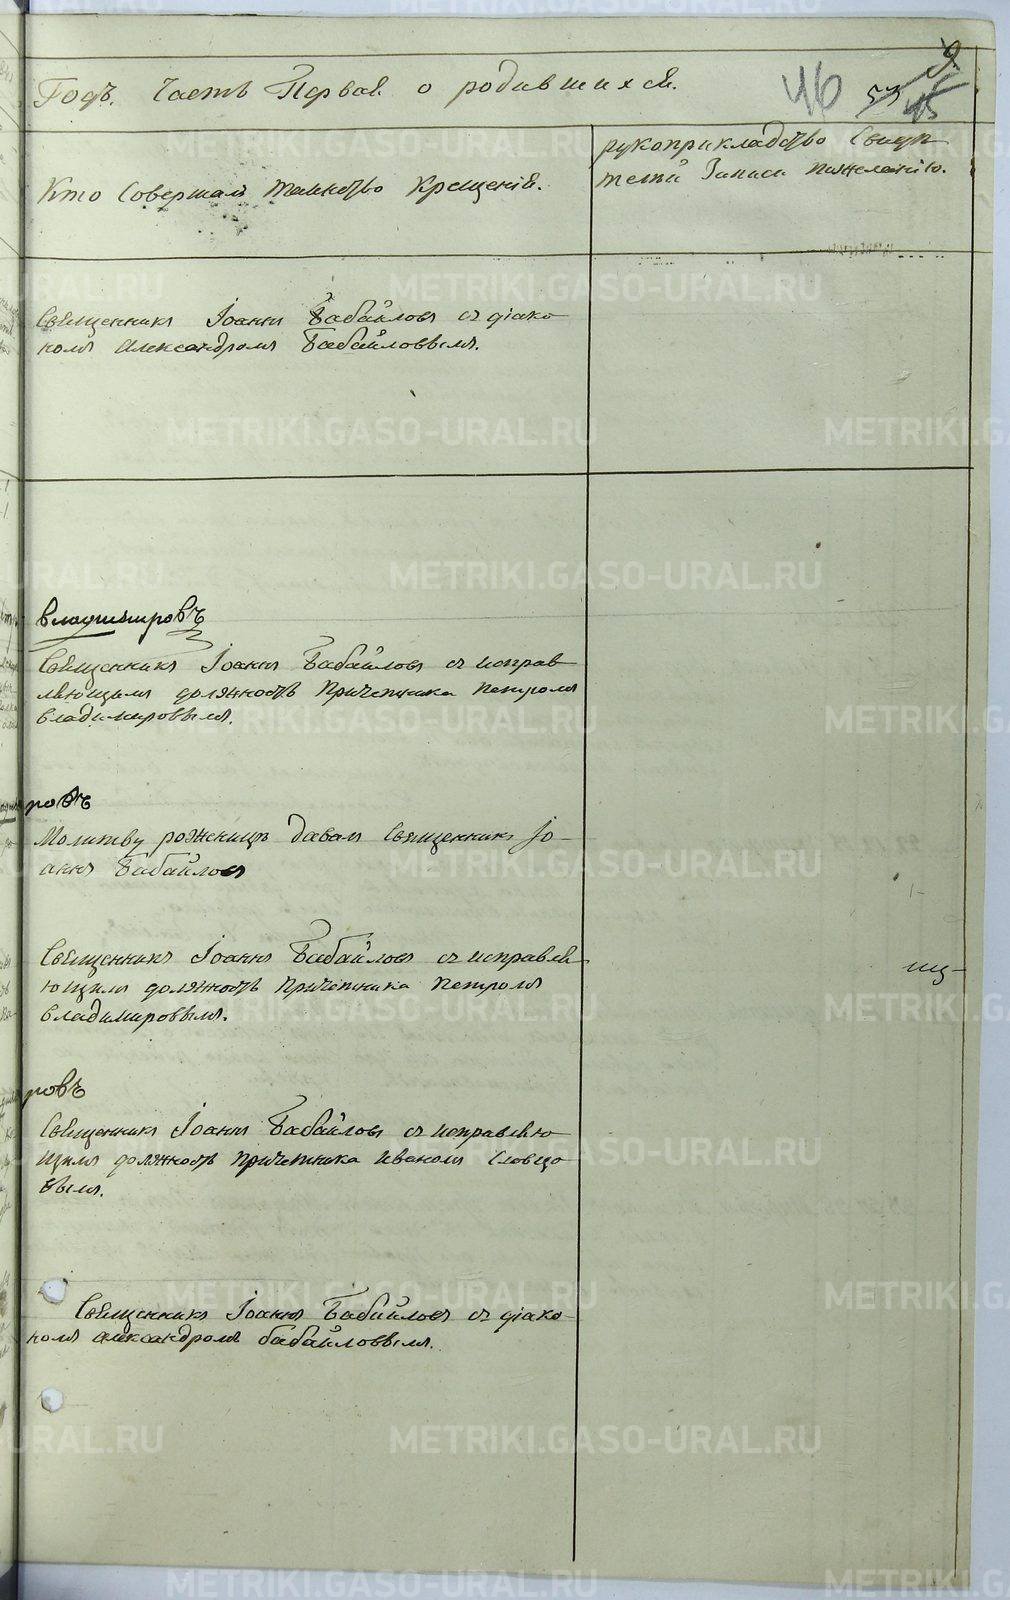 Годъ. Часть Первая о родившихся.
46
Кто Совершалъ таинство Крещенія.
рукоприкладство Свидѣ
телей Записи по желанію.
Священникъ Іоаннъ Бабайловъ съ діако
номъ Александромъ Бабайловвымъ.
Владимировъ
Священникъ Іоаннъ Бабайловъ съ исправ
ляющимъ должность Причетника Петромъ
Владимировымъ.
ровъ
Молитву роженицѣ давалъ Священникъ Іо-
аннъ Бабайловъ
Священникъ Іоаннъ Бабайловъ съ исправля-
ющимъ должность Причетника Петромъ
Владимировымъ.
ровъ
Священникъ Іоаннъ Бабайловъ съ исправляю
щимъ должность Причетника Иваномъ Словцо
вымъ.
Священникъ Іоаннъ Бабайловъ съ діако-
номъ Александромъ Бабайловвымъ.
METRIKI.GASO-URAL.RU